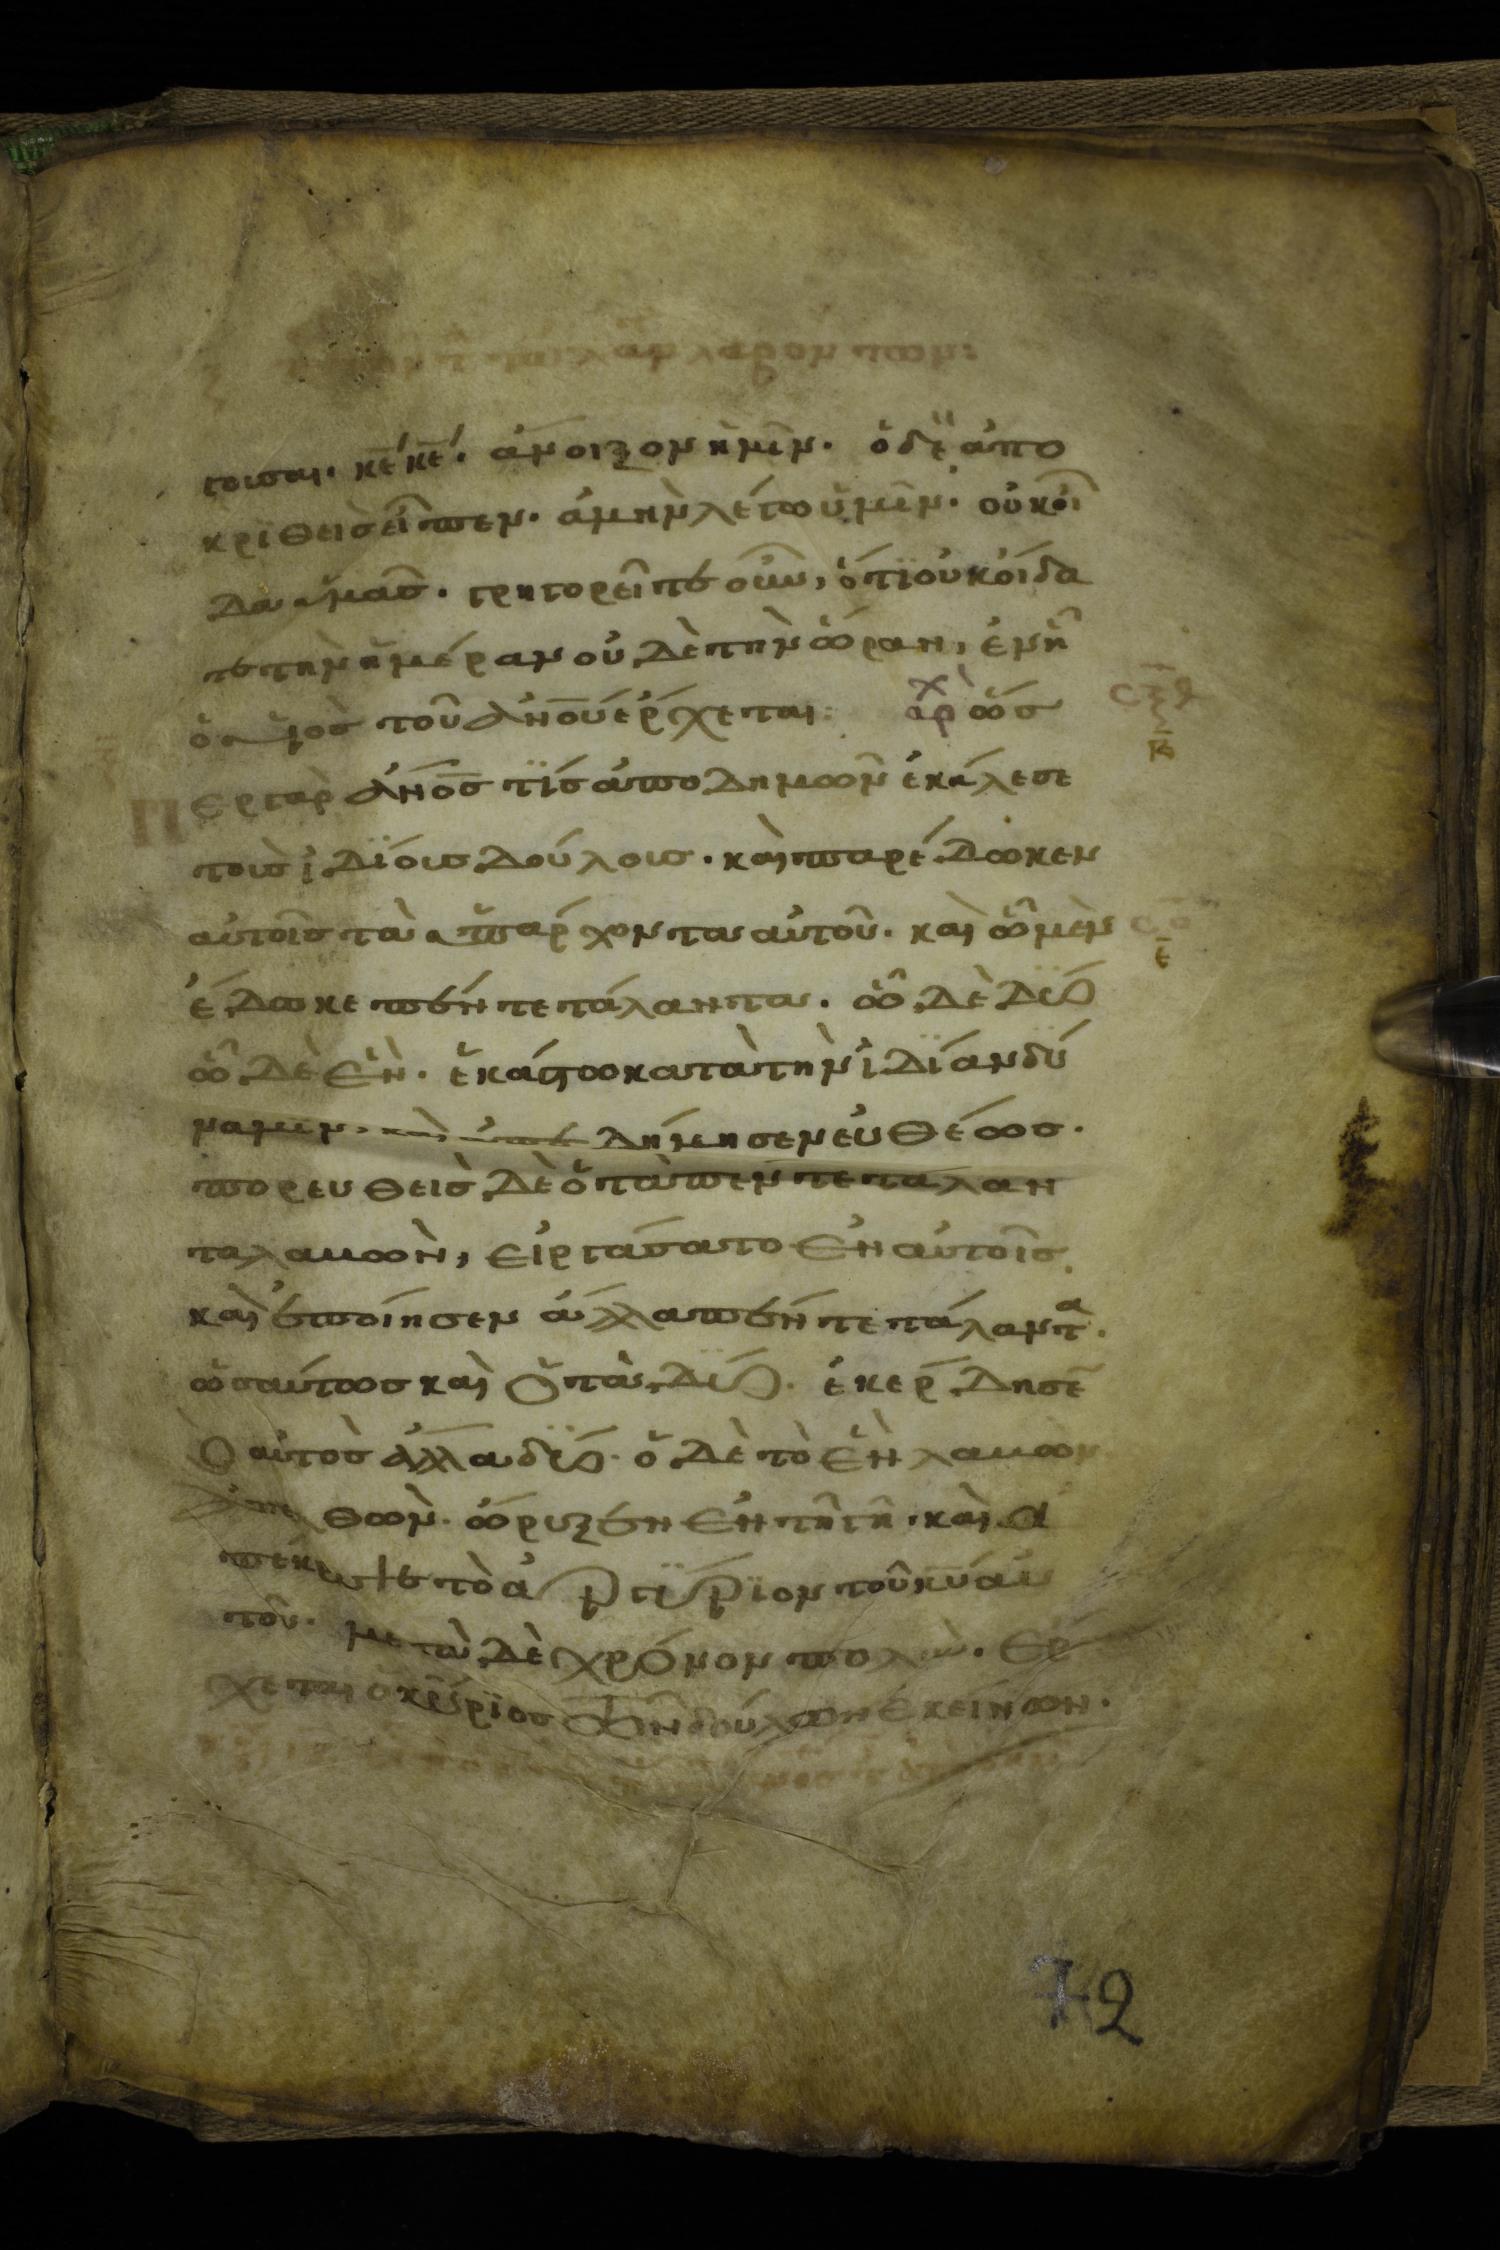 τῶν τὰ τάλαντα λαβόντων:
γουσαι· κ̅ε̅ κ̅ε̅· ἄνοιξον ἡμῖν· ὁ δὲ ἀπο
κριθεὶς εἶπεν· ἀμὴν λέγω ὑμῖν· οὐκ οἶ
δα ὑμᾶς· γρηγορεῖτε οὖν, ὅτι οὐκ οἴδα
τε τὴν ἡμέραν οὐδὲ τὴν ὥραν, ἐν ᾗ
ὁ υἱὸς τοῦ ἀ̅ν̅ο̅υ̅ ἔρχεται: ἀρχ ὥσ
περ γὰρ ἄ̅ν̅ο̅ς̅ τὶς ἀποδημῶν ἐκάλεσε
τοὺς ἰδίους δούλους· καὶ παρέδωκεν
αὐτοῖς τὰ ὑπάρχοντα αὐτοῦ· καὶ ᾧ μὲν
ε̅
ἔδωκε πέντε τάλαντα· ᾧ δὲ δύο
ᾧ δὲ ἕν· ἑκάστω κατὰ τὴν ἰδίαν δύ
ναμιν· καὶ ἀπεδήμησεν εὐθέως·
πορευθεὶς δὲ ὁ τὰ πέντε ταλαν
τα λαβών, εἰργάσατο ἐν αὐτοῖς
καὶ ἐποίησεν ἄλλα πέντε τάλαντα·
ὡσαύτως καὶ ὁ τὰ δύο· ἐκέρδησε̅
ὁ αὐτὸς ἄλλα δύο· ὁ δὲ τὸ ἓν λαβὼν
ἀπελθὼν· ὤρυξεν ἐν τῇ γῇ· καὶ ἀ
πέκρυψε τὸ ἀργύριον τοῦ κ̅υ̅ αὐ
τοῦ· μετὰ δὲ χρόνον πολὺν· ἔρ
χεται ὁ κύριος τῶν δούλων ἐκείνων·
72